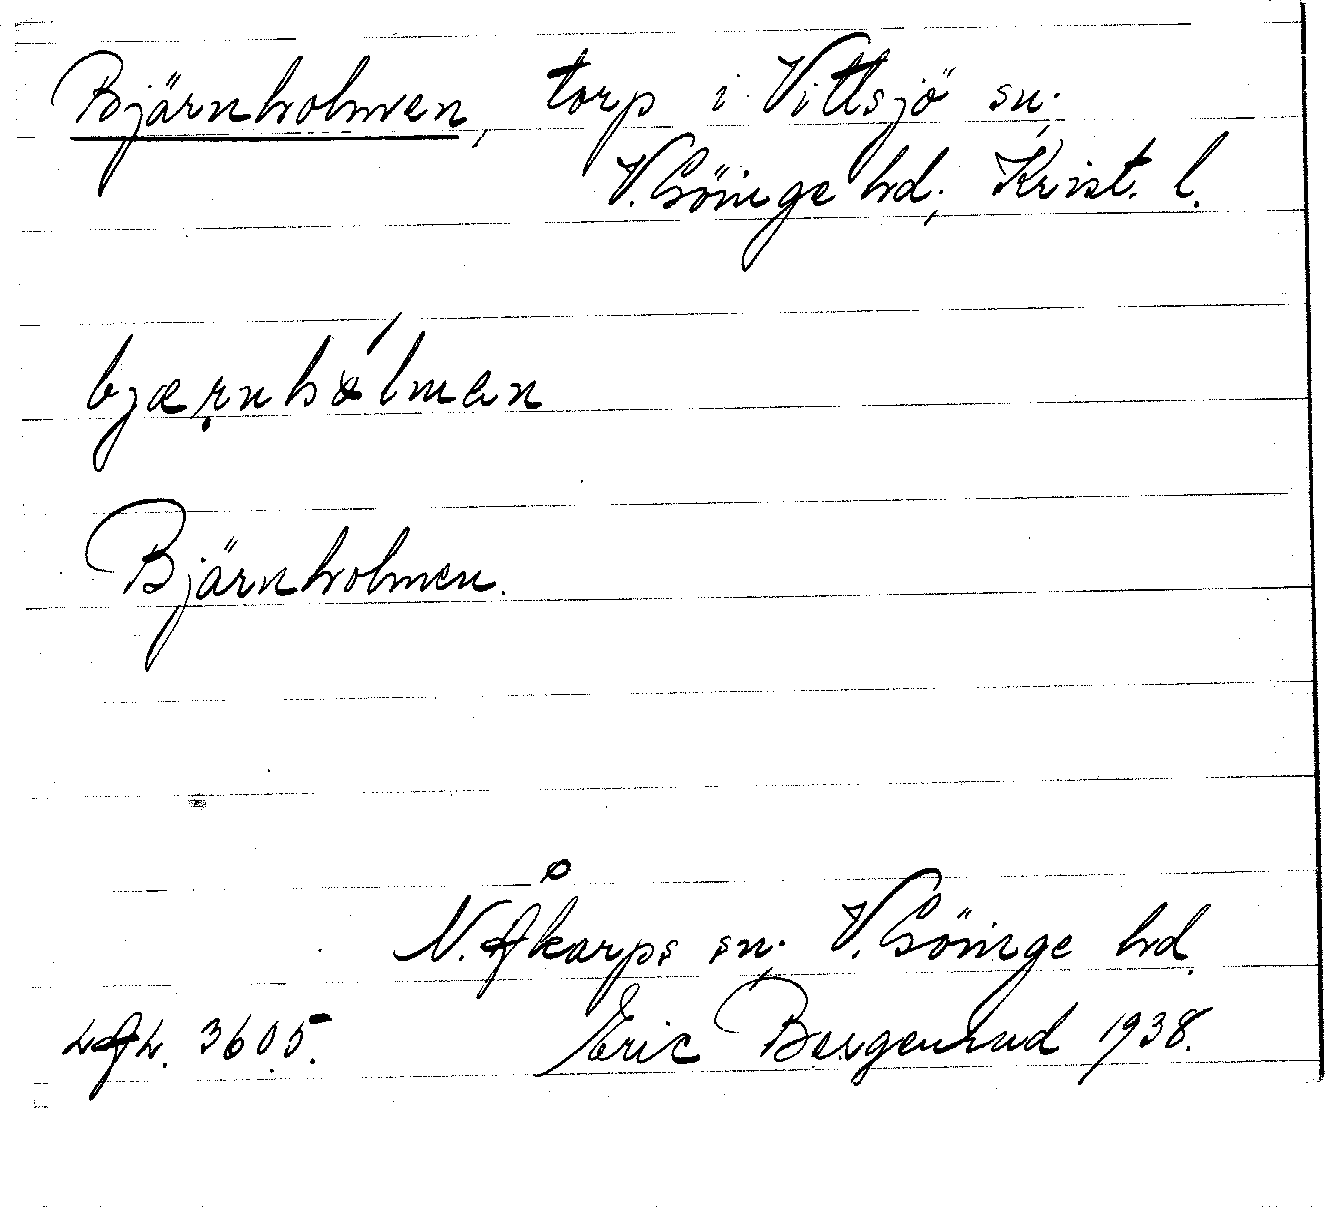 Bjärnholmen, torp i Vittsjö sn.
V. Göinge hd, Krist. l.
bjæṛnhålmen
Bjärnholmen.
N. Åkarps sn, V. Göinge hd.
LAL. 3605. Eric Bergenrud 1938.